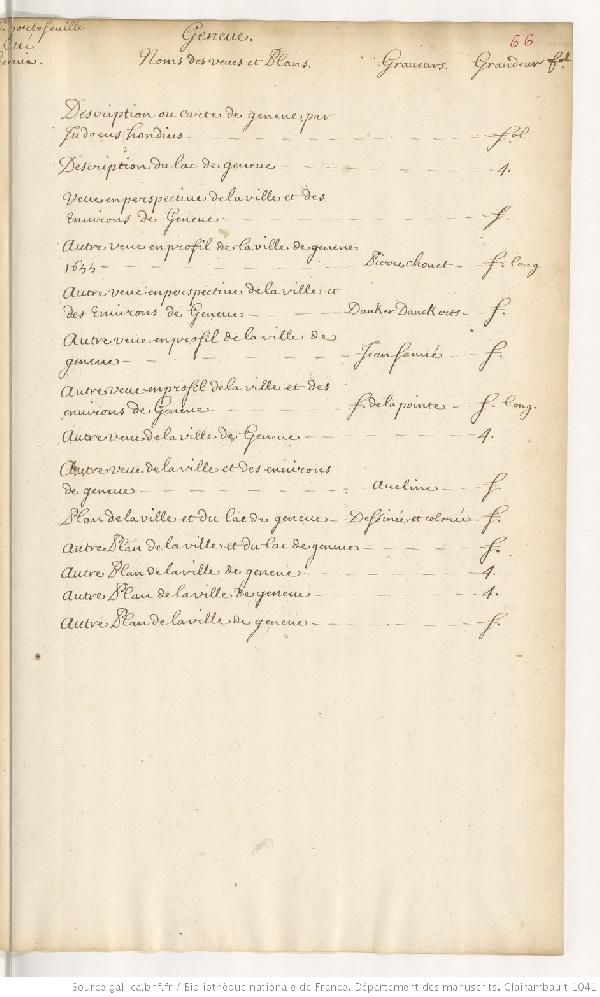 portefeuille
Geneve.
66
Noms des veues et Plans. Graveurs. Grandeur fol
Description ou carte de geneve par
Judocus hondius - fol
Description du lac de geneve - 4.
Veue en perspective de la ville et des
Environs de Geneve - f.
Autre veue en profil de la ville de geneve
1655 - Pierre chouet - f. long
Autre veue en perspective de la ville et
des Environs de Geneve - Danker Danckerts - f.
Autre veue en profil de la ville de
geneve - Jean - f.
Autre veue en profil de la ville et des
environs de Geneve - f. de la pointe - f. long.
Autre veue de la ville de Geneve - 4.
Autre veue de la ville et des environs
de geneve - Aveline - f.
Plan de la ville et du lac de geneve - Dessiné et colorié - f.
Autre Plan de la ville et du lac de geneve - f.
Autre Plan de la ville de geneve - 4.
Autre Plan de la ville de geneve - 4.
Autre Plan de la ville de geneve - f.
Source gallica.bnf.fr / Bibliothèque nationale de France. Département des manuscrits. Clairambault 1041